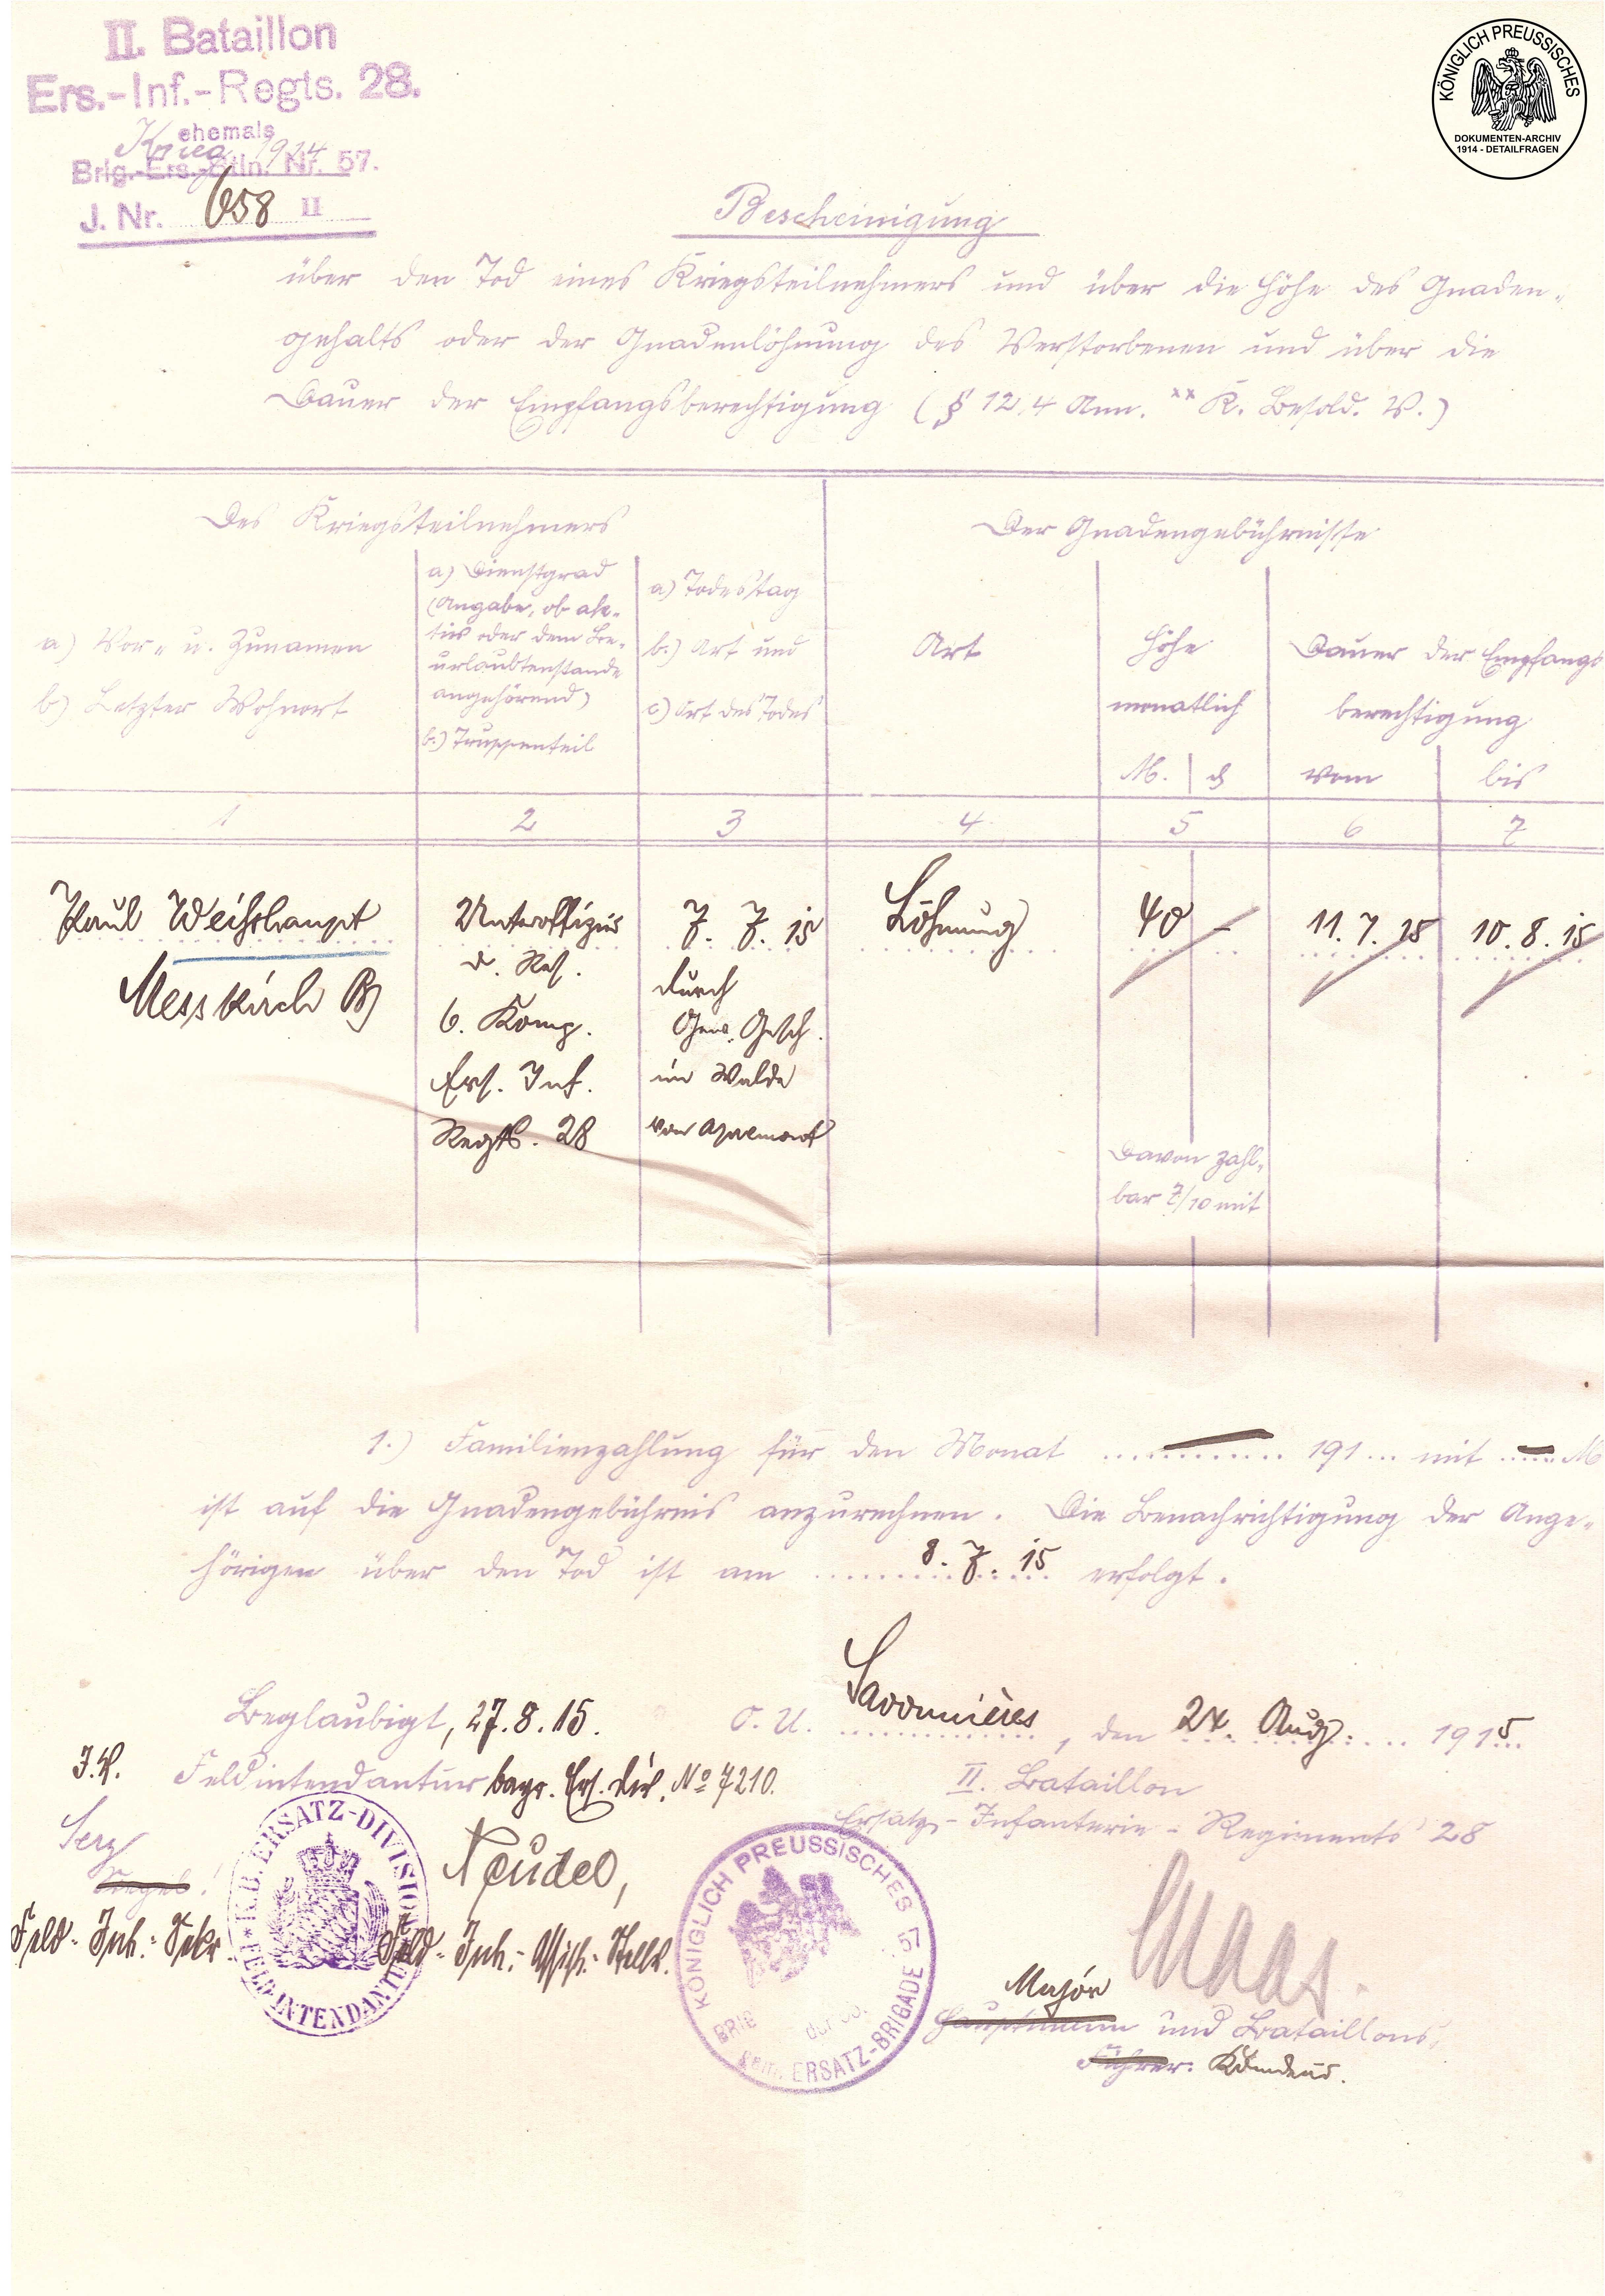 II. Bataillon
Ers.-Inf.-Regts. 28.
ehemals
Krieg 1914
Brig.-Ers.-Btln. Nr. 57.
J. Nr. 658 II
KÖNIGLICH PREUSSISCHES
DOKUMENTEN-ARCHIV
1914 - DETAILFRAGEN
Bescheinigung
über den Tod eines Kriegsteilnehmers und über die Höhe des Gnaden-
gehalts oder der Gnadenlöhnung des Verstorbenen und über die
Dauer der Empfangsberechtigung (§ 12,4 Anm. ** K. Besold. V.)
Des Kriegsteilnehmers
Der Gnadengebührnisse
a) Vor- u. Zunamen
b) Letzter Wohnort
a) Dienstgrad
(Angabe, ob ak-
tiv oder dem Be-
urlaubtenstande
angehörend)
b.) Truppenteil
a) Todestag
b.) Art und
c) Ort des Todes
Art
Höhe
monatlich
M. ₰
Dauer der Empfangs
berechtigung
vom bis
1 2 3 4 5 6 7
Paul Weißhaupt
Messkirch B
Unteroffizier
d. Res.
6. Komp.
Ers. Inf.
Regts. 28
7. 7. 15
durch
Gew. Gesch.
im Walde
von Apremont
Löhnung
40 –
11. 7. 15
10. 8. 15
Davon zahl-
bar 7/10 mit
1.) Familienzahlung für den Monat ............ 191... mit ...... M
ist auf die Gnadengebührnis anzurechnen. Die Benachrichtigung der Ange-
hörigen über den Tod ist am 8. 7. 15 erfolgt.
Beglaubigt, 27.8.15.
O. U. Savonnières, den 24. Aug. 1915
J.V. Feldintendantur bayr. Ers. Div. No 7210.
II. Bataillon
Ersatz-Infanterie-Regiments 28
Serz
Siegel!
Neudel,
Feld-Int.-Sekr.
Feld-Int.-Assist.-Stellv.
K.B. ERSATZ-DIVISION
FELDINTENDANTUR
KÖNIGLICH PREUSSISCHES
BRIG
57
ERSATZ-BRIGADE
Maas.
Major
Hauptmann und Bataillons-
Führer. Kömdeur.